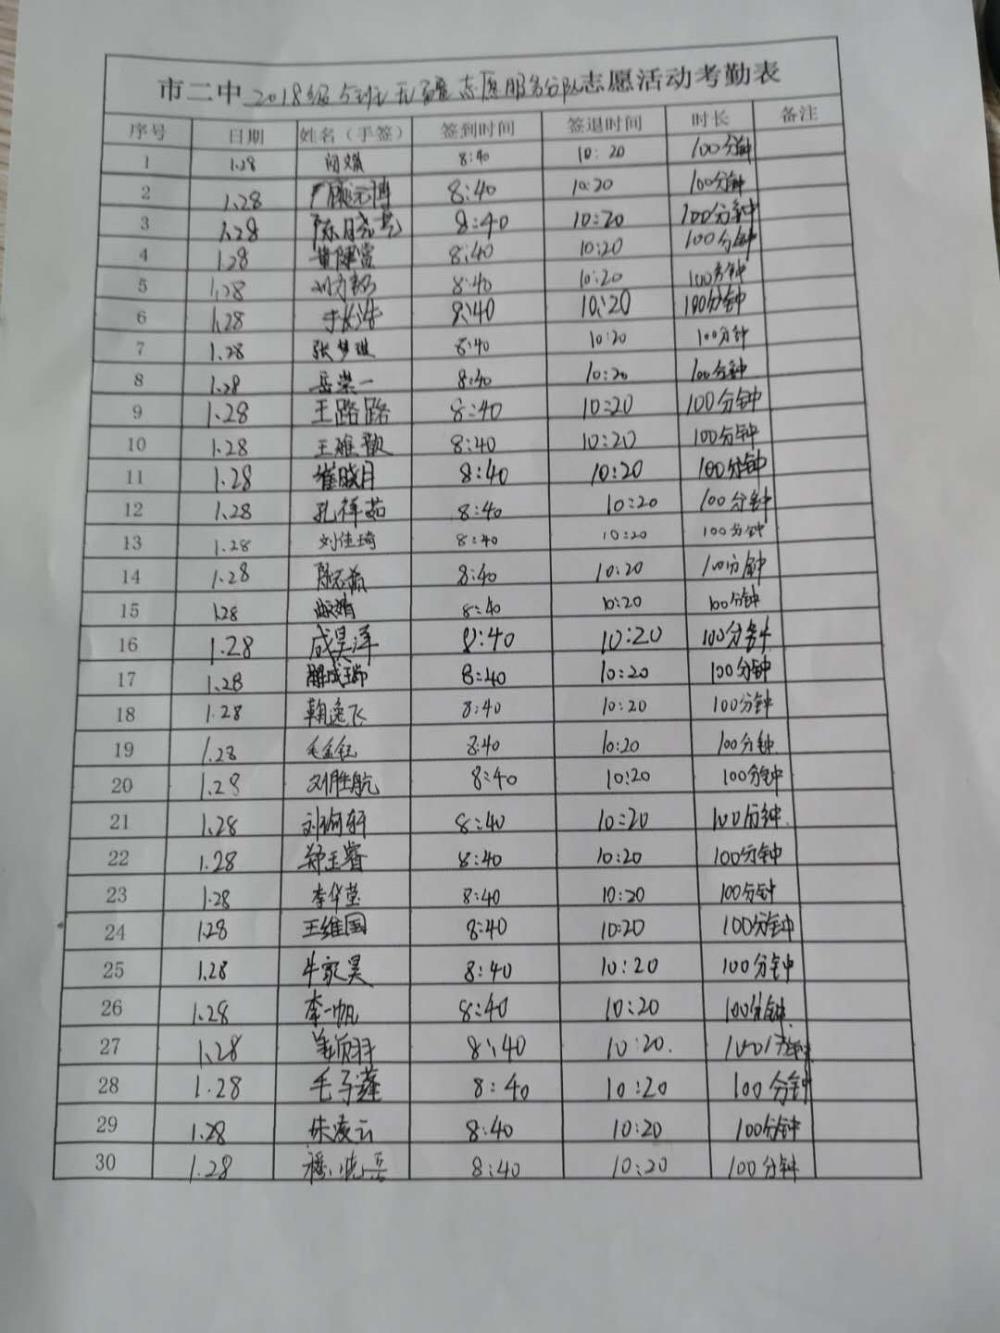 市二中2018级5班无疆志愿服务分队志愿活动考勤表
序号 日期 姓名（手签） 签到时间 签退时间 时长 备注
1 1.28 8:40 10:20 100分钟
2 1.28 8:40 10:20 100分钟
3 1.28 8:40 10:20 100分钟
4 1.28 8:40 10:20 100分钟
5 1.28 8:40 10:20 100分钟
6 1.28 8:40 10:20 100分钟
7 1.28 张梦琪 8:40 10:20 100分钟
8 1.28 岳崇一 8:40 10:20 100分钟
9 1.28 王路路 8:40 10:20 100分钟
10 1.28 王雅歌 8:40 10:20 100分钟
11 1.28 崔晓月 8:40 10:20 100分钟
12 1.28 孔祥茹 8:40 10:20 100分钟
13 1.28 刘佳琦 8:40 10:20 100分钟
14 1.28 8:40 10:20 100分钟
15 1.28 8:40 10:20 100分钟
16 1.28 成昊泽 8:40 10:20 100分钟
17 1.28 8:40 10:20 100分钟
18 1.28 韩逸飞 8:40 10:20 100分钟
19 1.28 毛金钰 8:40 10:20 100分钟
20 1.28 刘胜航 8:40 10:20 100分钟
21 1.28 8:40 10:20 100分钟
22 1.28 郑玉睿 8:40 10:20 100分钟
23 1.28 李华莹 8:40 10:20 100分钟
24 1.28 王维国 8:40 10:20 100分钟
25 1.28 牛家昊 8:40 10:20 100分钟
26 1.28 李一帆 8:40 10:20 100分钟
27 1.28 8:40 10:20 100分钟
28 1.28 毛子蓬 8:40 10:20 100分钟
29 1.28 朱凌云 8:40 10:20 100分钟
30 1.28 8:40 10:20 100分钟